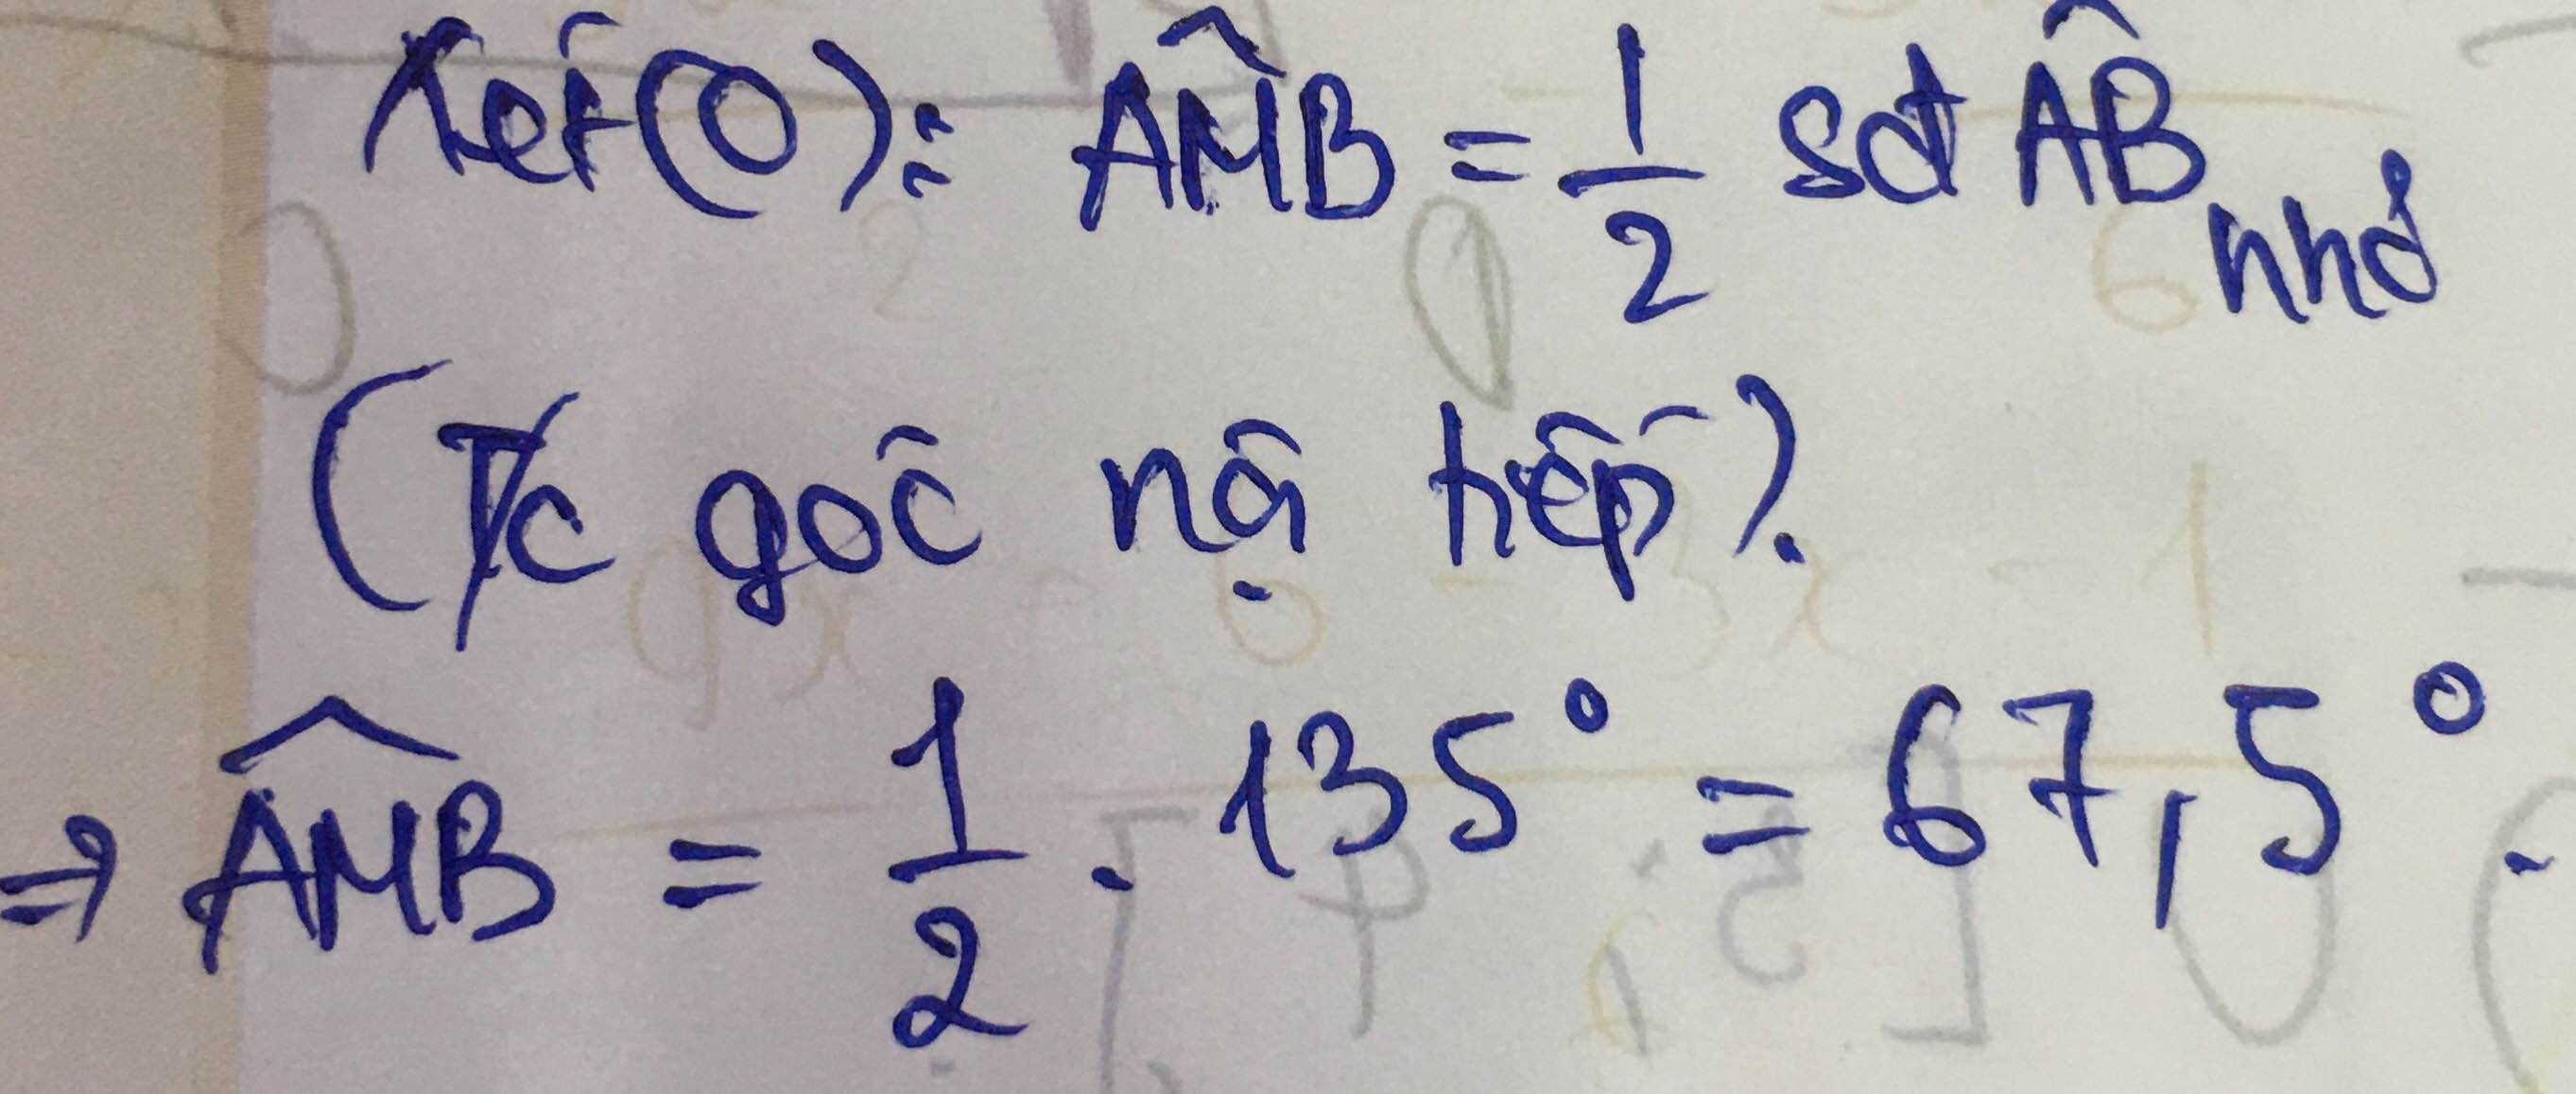 Xét (O): \widehat{AMB} = \frac{1}{2} sđ \overset{\frown}{AB}_{nhỏ}
(T/c góc nội tiếp).
⇒ \widehat{AMB} = \frac{1}{2} . 135° = 67,5°.